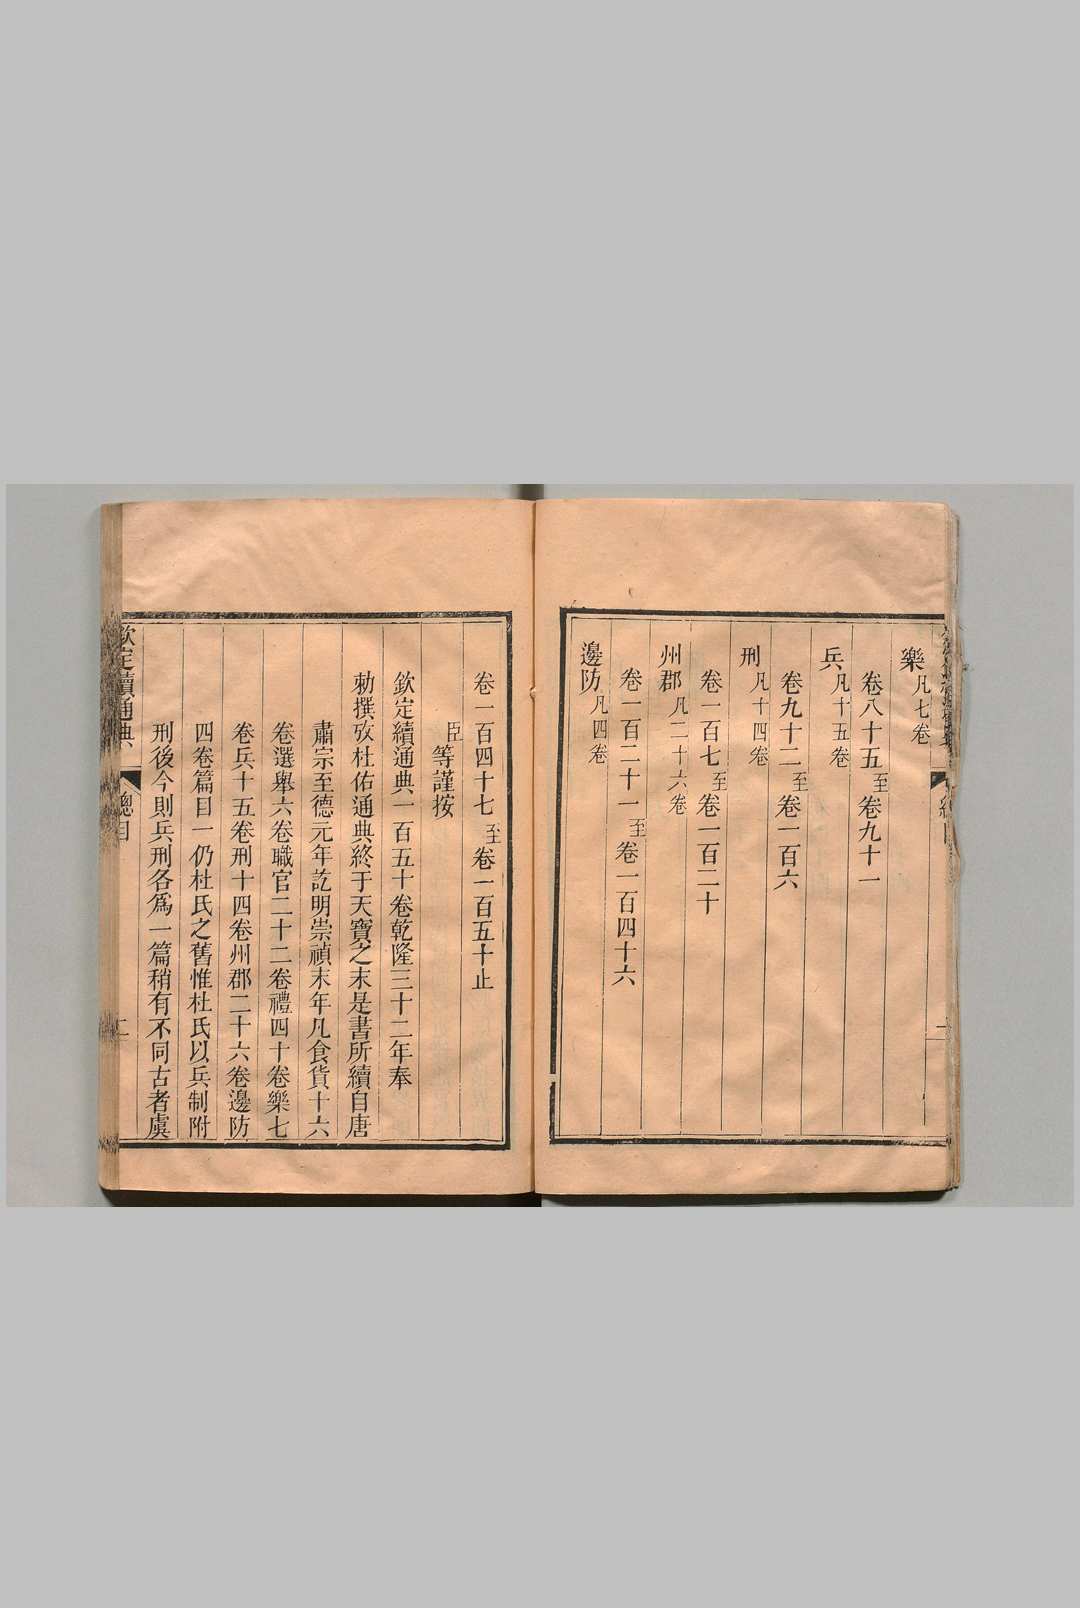 樂凡七卷
卷八十五至卷九十一
兵凡十五卷
卷九十二至卷一百六
刑凡十四卷
卷一百七至卷一百二十
州郡凡二十六卷
卷一百二十一至卷一百四十六
邊防凡四卷
卷一百四十七至卷一百五十止
臣等謹按
欽定續通典一百五十卷乾隆三十二年奉
勅撰攷杜佑通典終于天寶之末是書所續自唐
肅宗至德元年訖明崇禎末年凡食貨十六
卷選舉六卷職官二十二卷禮四十卷樂七
卷兵十五卷刑十四卷州郡二十六卷邊防
四卷篇目一仍杜氏之舊惟杜氏以兵制附
刑後今則兵刑各爲一篇稍有不同古者虞
欽定續通典 總目 二